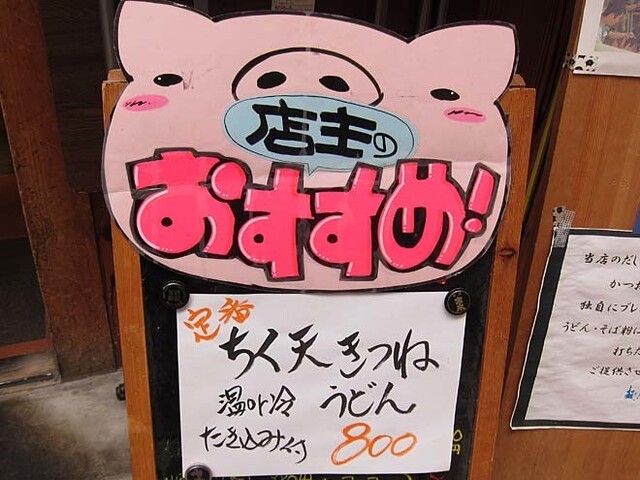 店主の
おすすめ!
定番
ちく天きつね
温or冷 うどん
たき込み付 800
当店のだし
かつお
独自にブレ
うどん・そば粉に
打ちた
ご提供させ